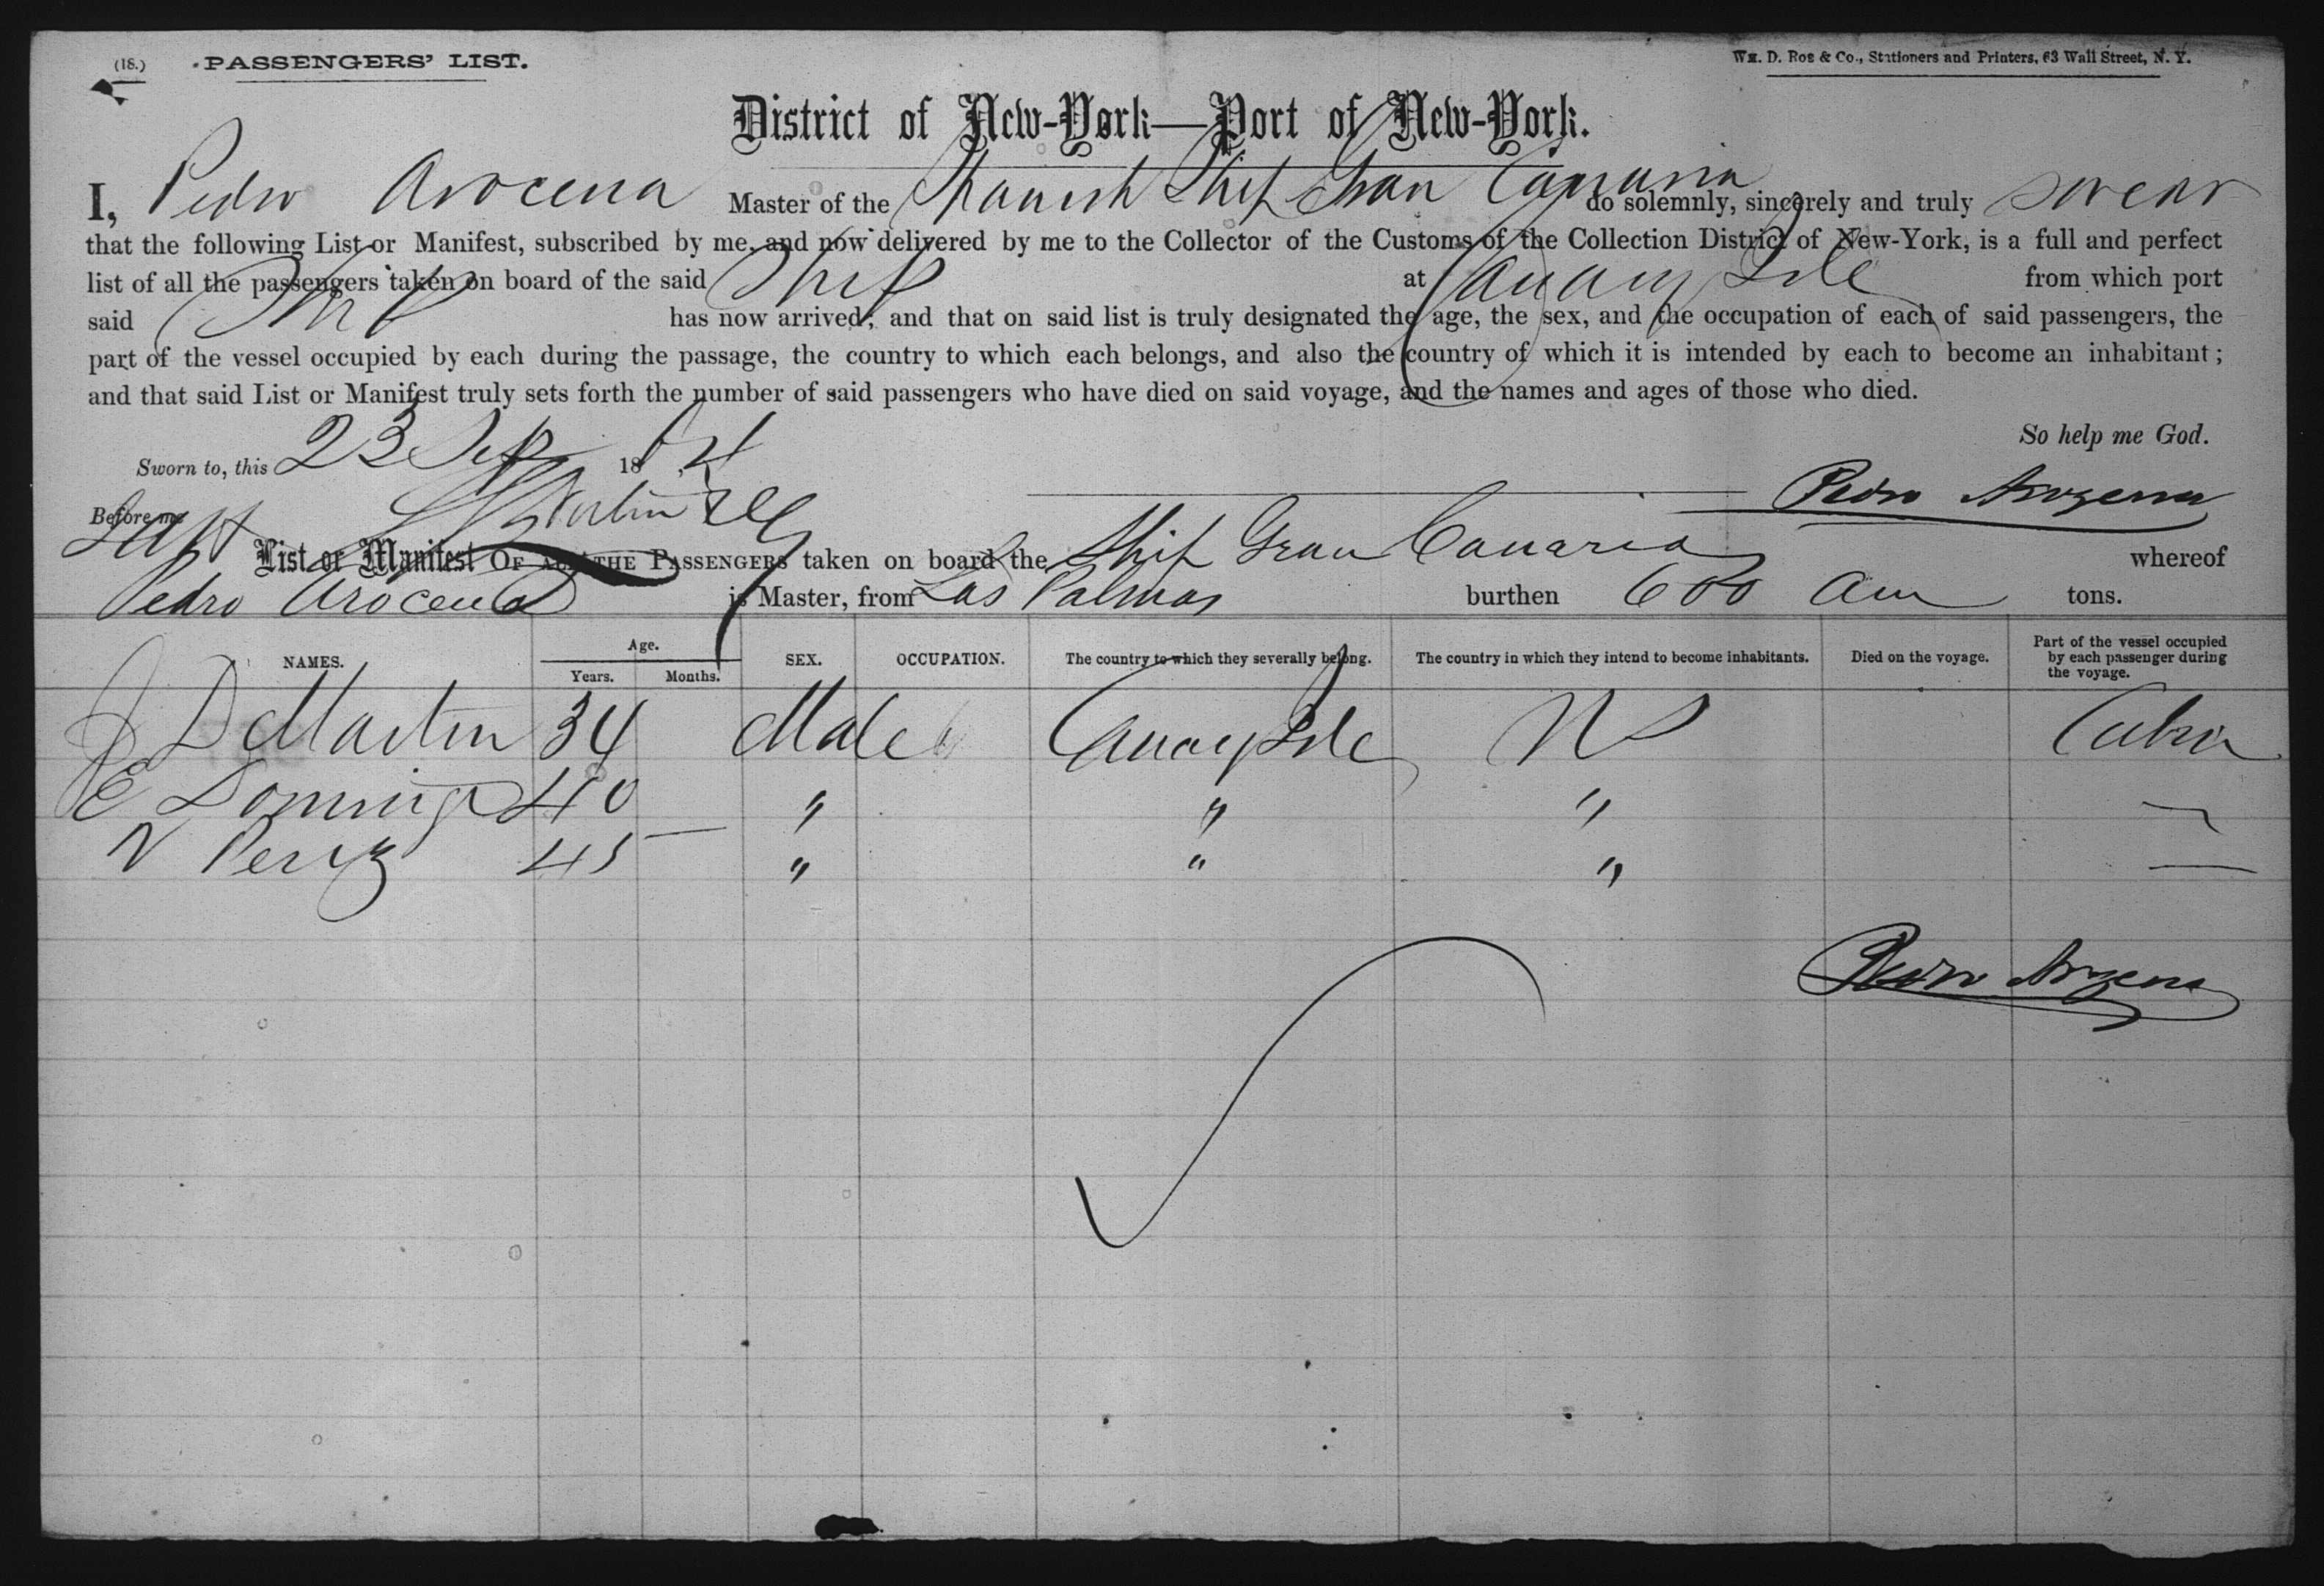 (18.) PASSENGERS' LIST. Wm. D. Roe & Co., Stationers and Printers, 63 Wall Street, N. Y.
District of New-York—Port of New-York.
I, Pedro Arocena Master of the Spanish Ship Gran Canaria do solemnly, sincerely and truly swear
that the following List or Manifest, subscribed by me, and now delivered by me to the Collector of the Customs of the Collection District of New-York, is a full and perfect
list of all the passengers taken on board of the said Ship at Canary Isle from which port
said Ship has now arrived; and that on said list is truly designated the age, the sex, and the occupation of each of said passengers, the
part of the vessel occupied by each during the passage, the country to which each belongs, and also the country of which it is intended by each to become an inhabitant;
and that said List or Manifest truly sets forth the number of said passengers who have died on said voyage, and the names and ages of those who died.
So help me God.
Sworn to, this 23 Sep 18
Before me Pedro Arozena
List or Manifest OF ALL THE PASSENGERS taken on board the Ship Gran Canaria whereof
Pedro Arocena is Master, from Las Palmas burthen 600 am tons.
NAMES. Age. Years. Months. SEX. OCCUPATION. The country to which they severally belong. The country in which they intend to become inhabitants. Died on the voyage. Part of the vessel occupied by each passenger during the voyage.
J D Martin 34 Male Canary Isle N S
E Domingo 40 " " "
N Perez 45 " " "
Pedro Arozena